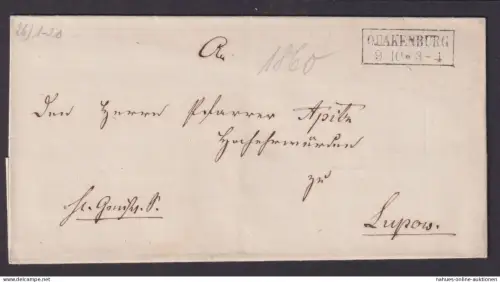 26/1-20
QUAKENBURG
9 10 * 3-4
An
1860
Den Herrn Pfarrer Apitz
Hochehrwürden
zu
Lupow.
www.nationale-auktionen.de